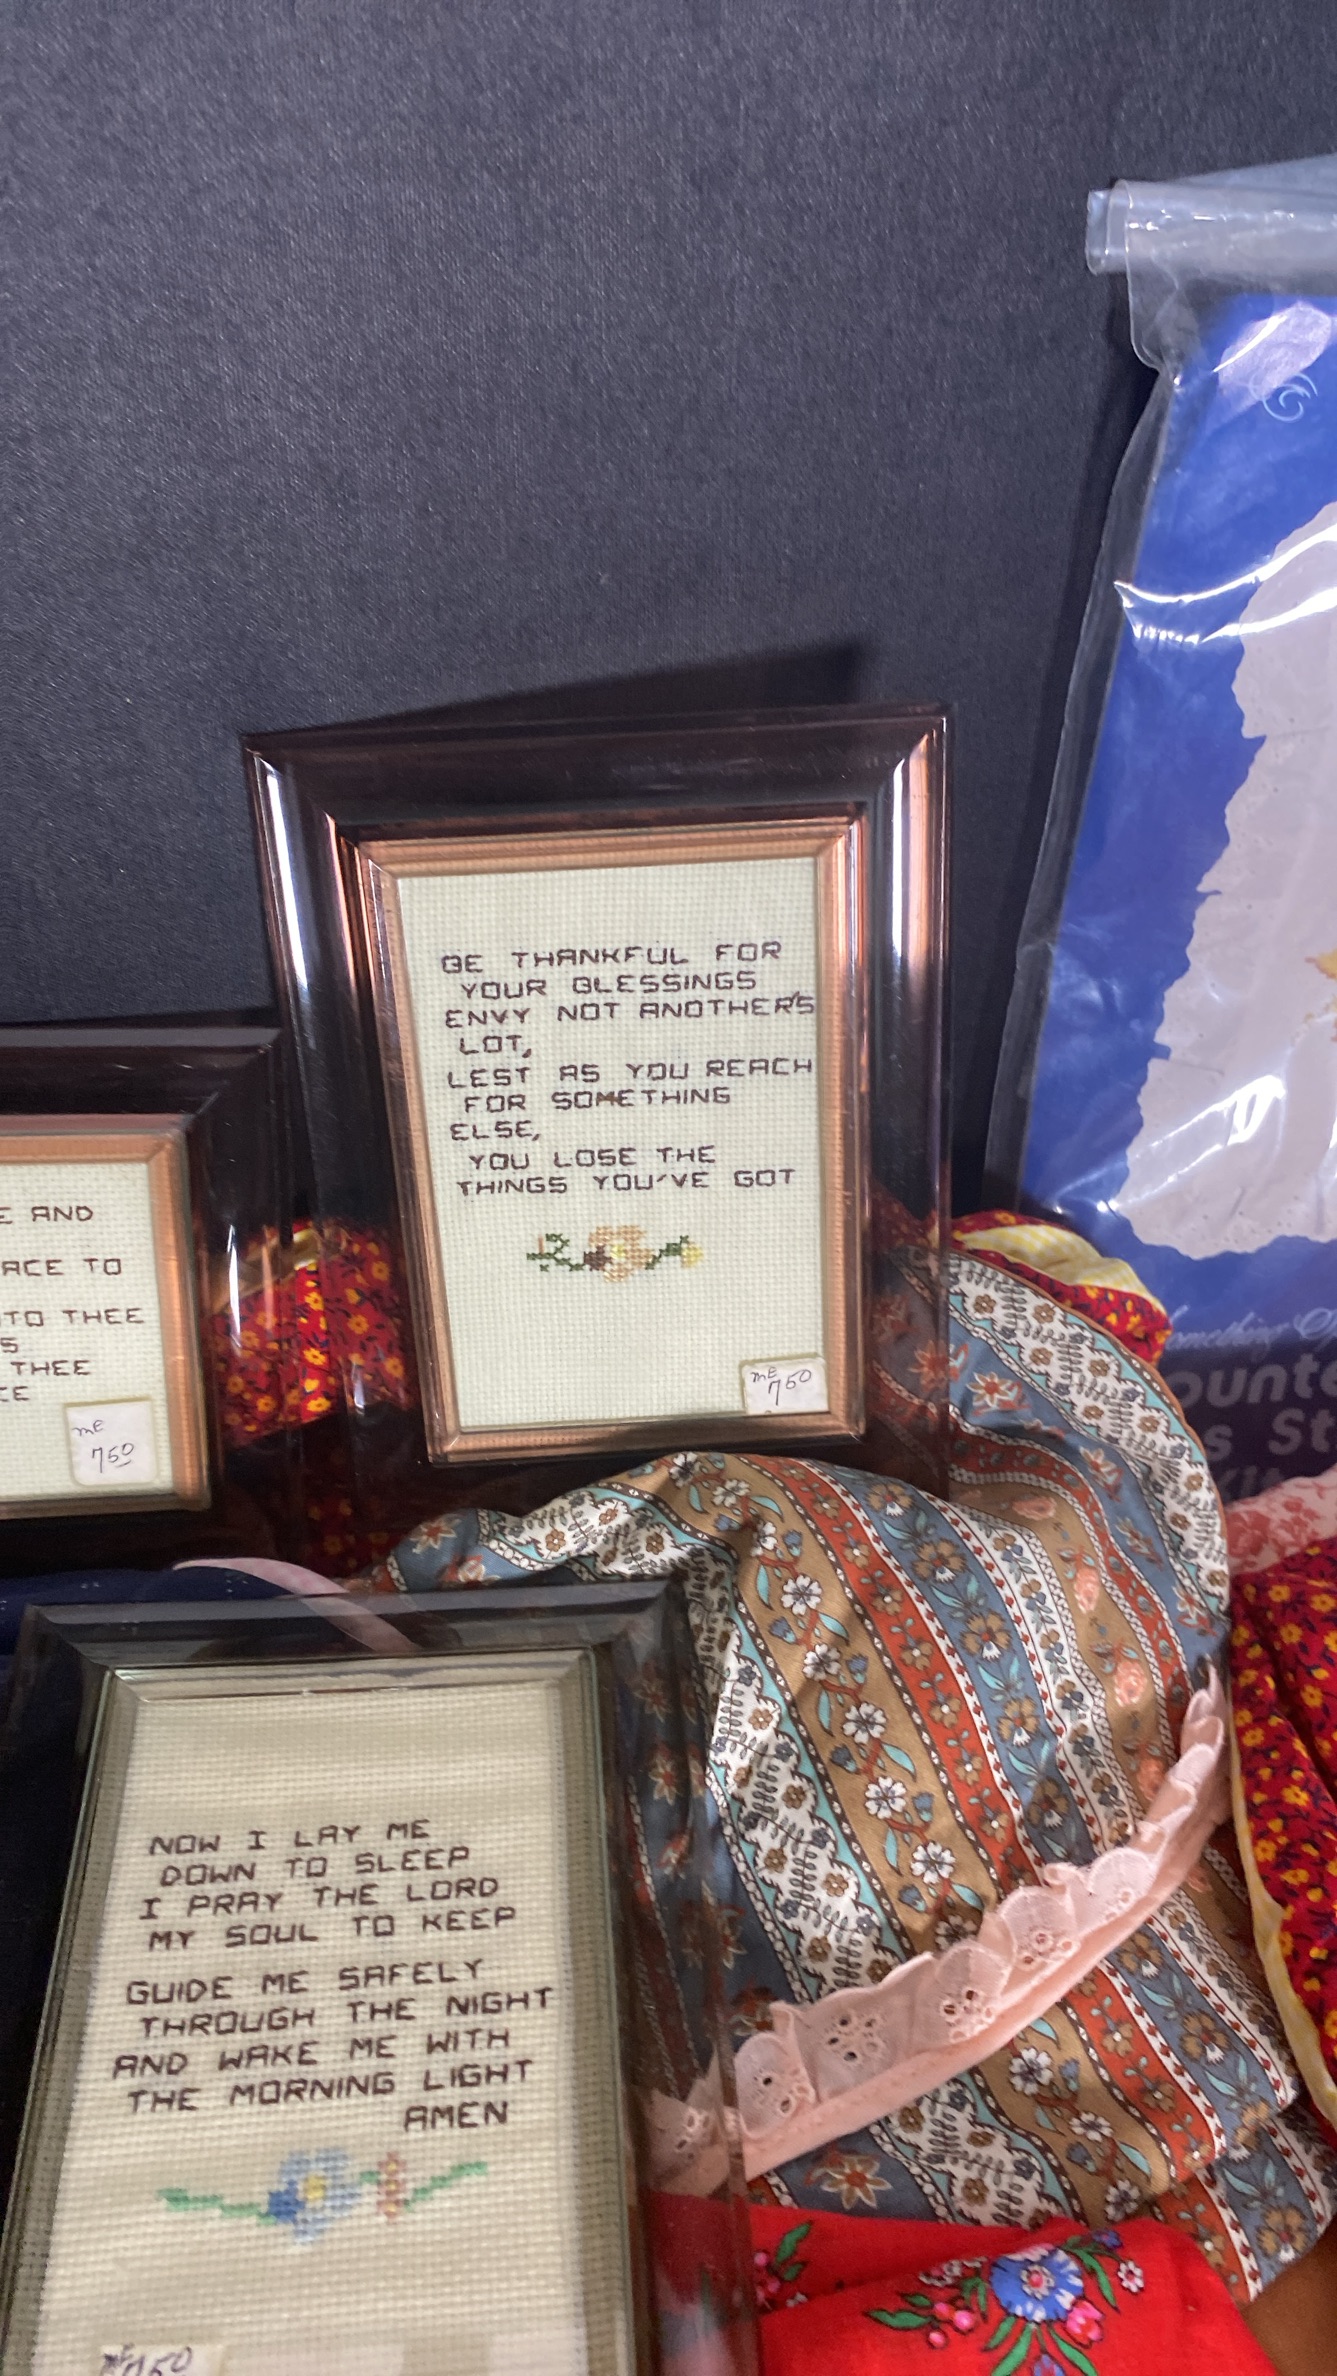 BE THANKFUL FOR
YOUR BLESSINGS
ENVY NOT ANOTHER'S
LOT,
LEST AS YOU REACH
FOR SOMETHING
ELSE,
YOU LOSE THE
THINGS YOU'VE GOT
me
750
AND
TO
THEE
THEE
me
750
NOW I LAY ME
DOWN TO SLEEP
I PRAY THE LORD
MY SOUL TO KEEP
GUIDE ME SAFELY
THROUGH THE NIGHT
AND WAKE ME WITH
THE MORNING LIGHT
AMEN
me 750
Something